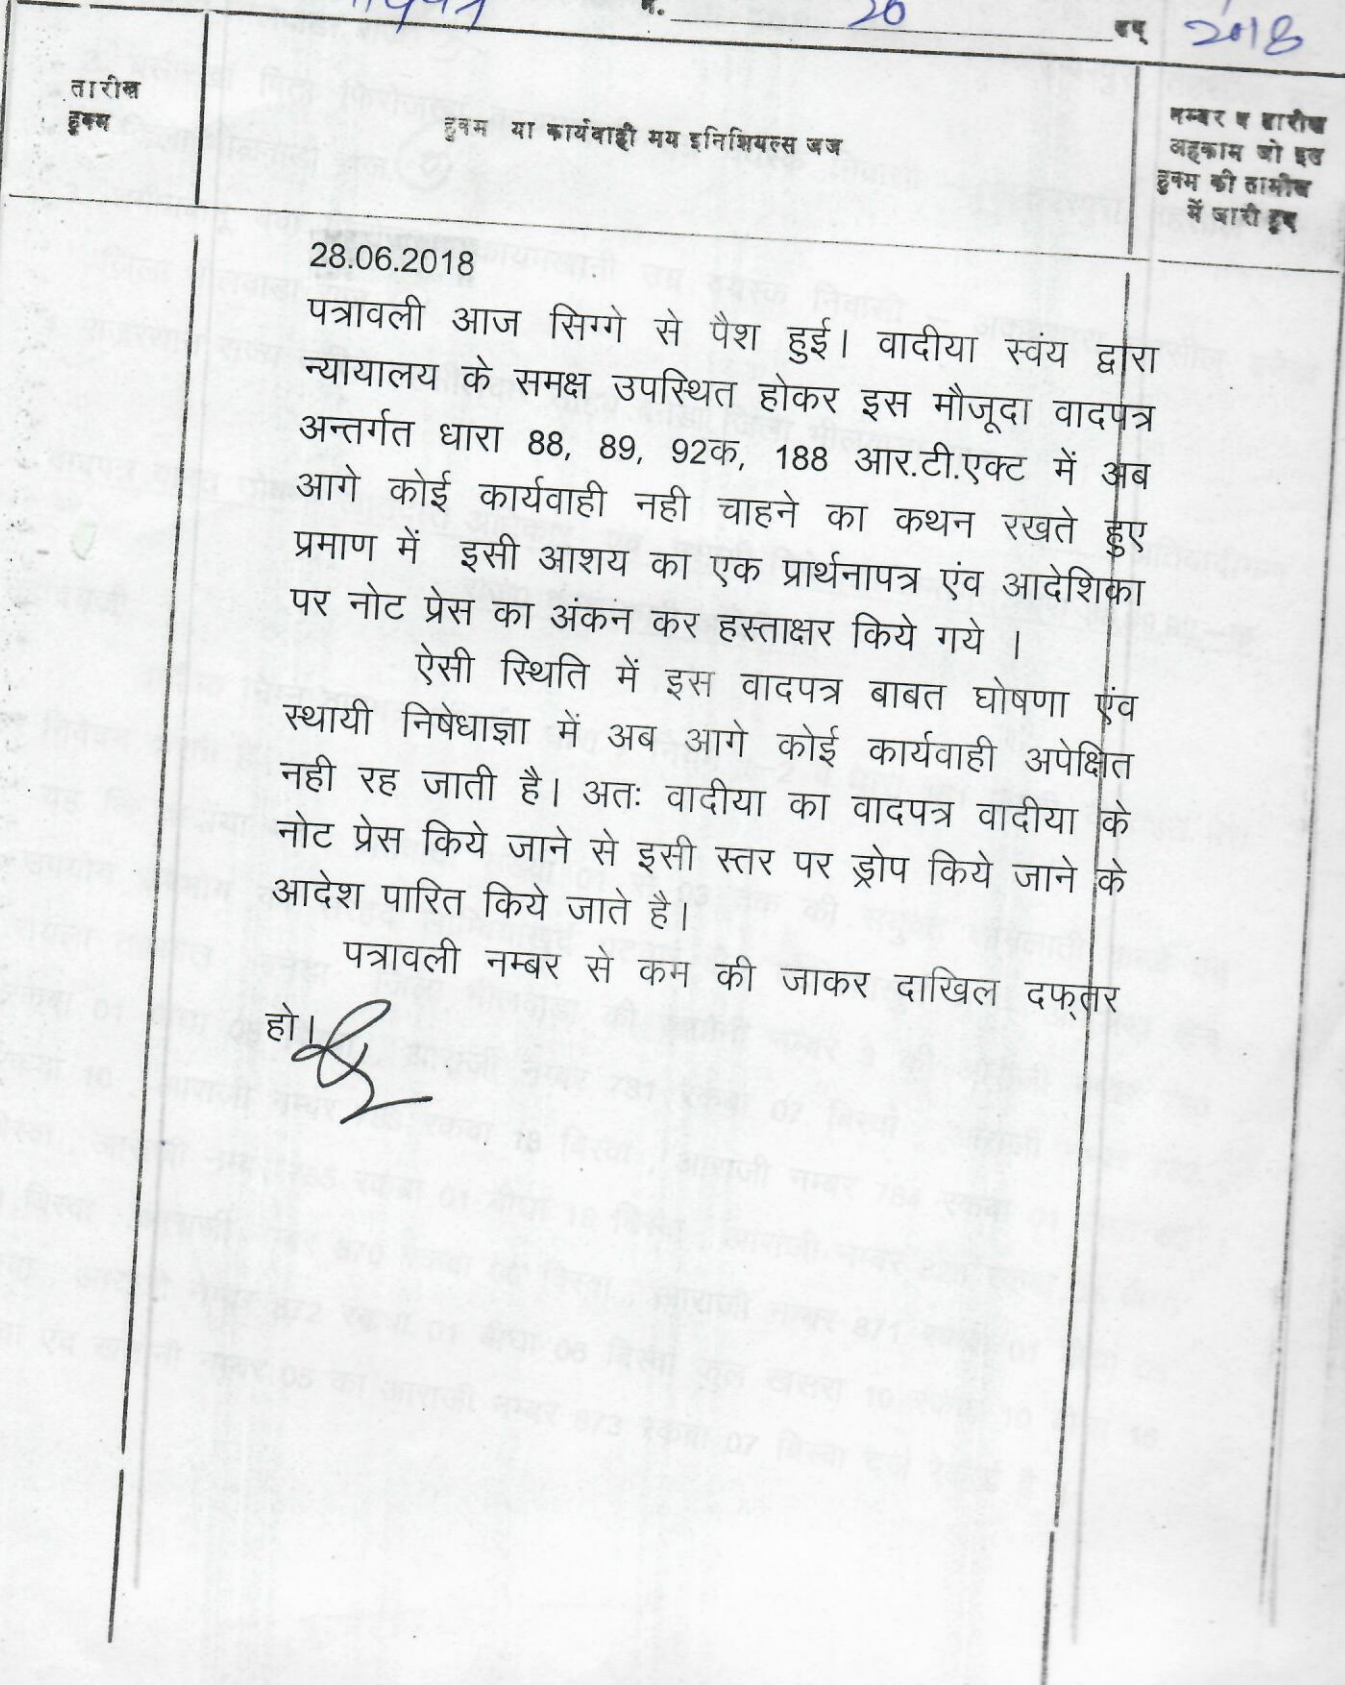 न. 20 सन् 2018
तारीख
हुक्म
हुक्म या कार्यवाही मय इनिशियल्स जज
नम्बर व तारीख
अहकाम जो इस
हुक्म की तामील
में जारी हुए
28.06.2018
पत्रावली आज सिग्गे से पैश हुई। वादीया स्वंय द्वारा
न्यायालय के समक्ष उपस्थित होकर इस मौजूदा वादपत्र
अन्तर्गत धारा 88, 89, 92क, 188 आर.टी.एक्ट में अब
आगे कोई कार्यवाही नही चाहने का कथन रखते हुए
प्रमाण में इसी आशय का एक प्रार्थनापत्र एंव आदेशिका
पर नोट प्रेस का अंकन कर हस्ताक्षर किये गये ।
ऐसी स्थिति में इस वादपत्र बाबत घोषणा एंव
स्थायी निषेधाज्ञा में अब आगे कोई कार्यवाही अपेक्षित
नही रह जाती है। अतः वादीया का वादपत्र वादीया के
नोट प्रेस किये जाने से इसी स्तर पर ड्रोप किये जाने के
आदेश पारित किये जाते है।
पत्रावली नम्बर से कम की जाकर दाखिल दफ्तर
हो।